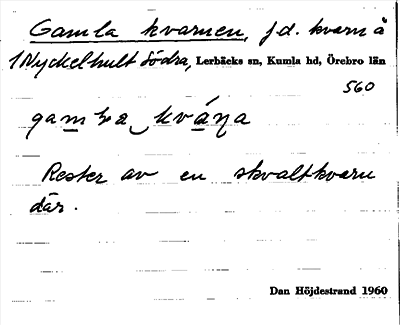 Gamla kvarnen, f.d. kvarn å
1 Nyckelhult Södra, Lerbäcks sn, Kumla hd, Örebro län
560
Rester av en skvaltkvarn
där.
Dan Höjdestrand 1960